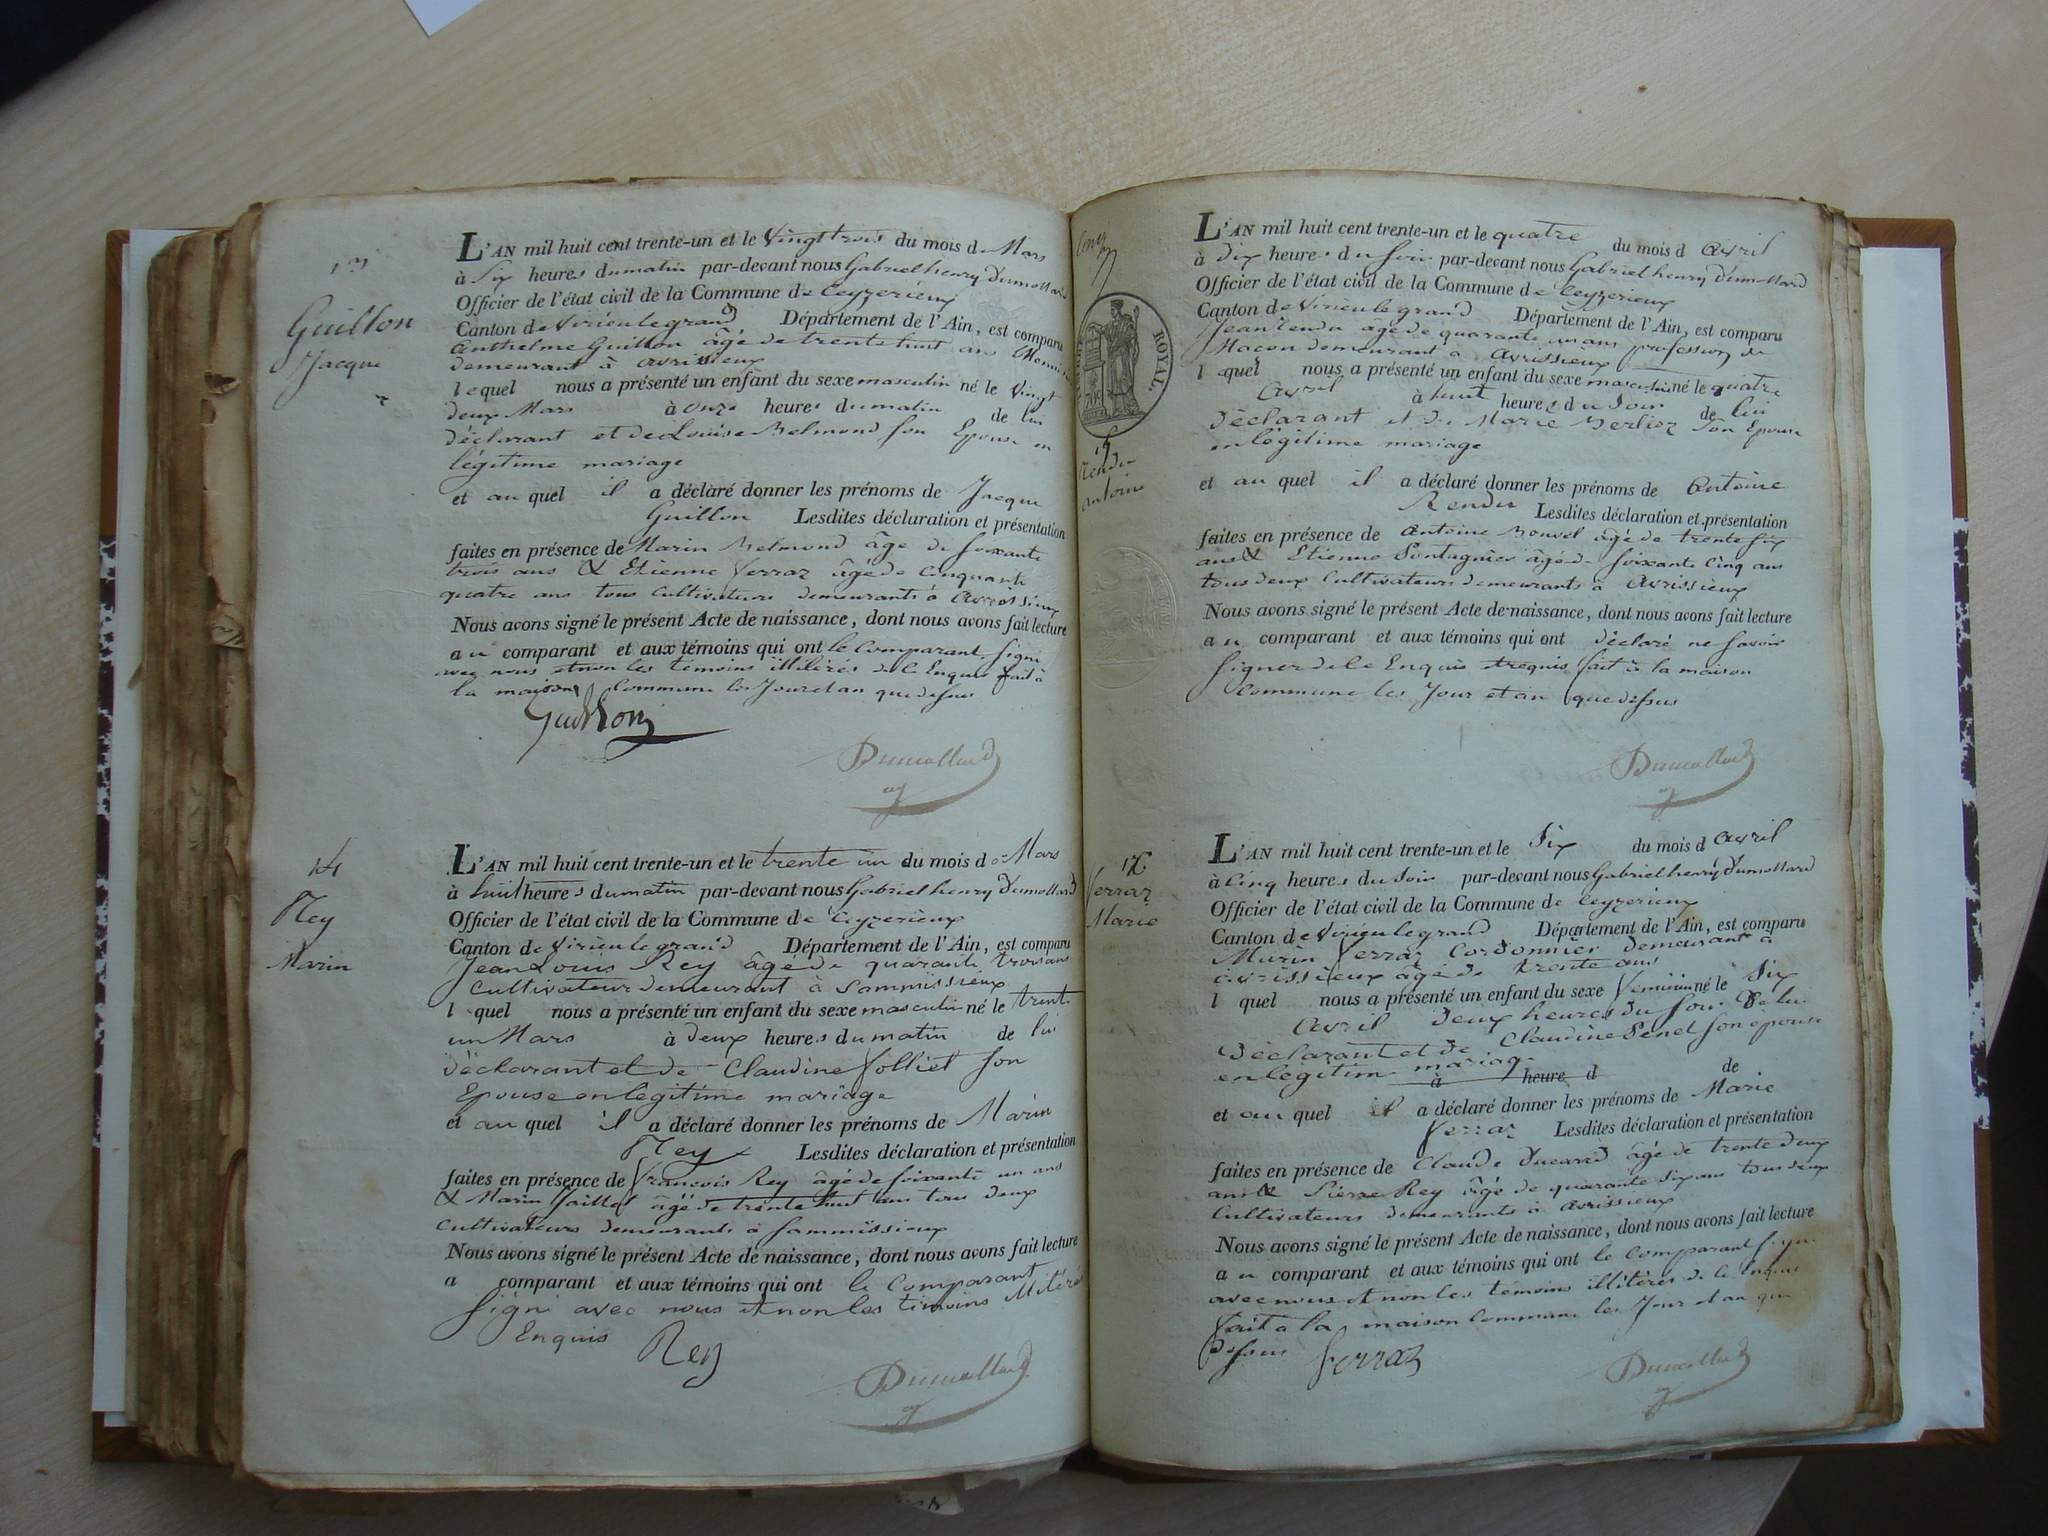 13
Guillon
Jacque
L'AN mil huit cent trente-un et le vingt trois du mois de Mars
à Six heures du matin par-devant nous Gabriel henry Dumollard
Officier de l'état civil de la Commune de Ceyzerieux
Canton de Virieulegrand Département de l'Ain, est comparu
Anthelme Guillon âgé de trente huit ans
demeurant à avrissieux
lequel nous a présenté un enfant du sexe masculin né le vingt
deux Mars à onze heures du matin de lui
déclarant et de Louise Belmond son Epouse en
légitime mariage
et au quel il a déclaré donner les prénoms de Jacque
Guillon Lesdites déclaration et présentation
faites en présence de Marin Belmond âgé de soixante
trois ans & Etienne Verraz âgé de Cinquante
quatre ans tous Cultivateurs demeurants à avrissieux
Nous avons signé le présent Acte de naissance, dont nous avons fait lecture
au comparant et aux témoins qui ont le Comparant signé
avec nous et non les témoins illitérés de ce Enquis fait à
la maison Commune les Jour et an que dessus
Guillon
Dumollard
14
Rey
Marin
L'AN mil huit cent trente-un et le trente un du mois de Mars
à huit heures du matin par-devant nous Gabriel henry Dumollard
Officier de l'état civil de la Commune de Ceyzerieux
Canton de Virieulegrand Département de l'Ain, est comparu
Jean Louis Rey âgé de quarante trois ans
Cultivateur demeurant à Sammissieux
l quel nous a présenté un enfant du sexe masculin né le trente
un Mars à deux heures du matin de lui
déclarant et de Claudine Jolliet son
Epouse en legitime mariage
et au quel il a déclaré donner les prénoms de Marin
Rey Lesdites déclaration et présentation
faites en présence de francois Rey âgé de soixante un ans
& Marin âgé de trente huit ans tous deux
Cultivateurs demeurants à Sammissieux
Nous avons signé le présent Acte de naissance, dont nous avons fait lecture
a comparant et aux témoins qui ont le Comparant
signé avec nous et non les témoins illitérés
Enquis
Rey
Dumollard
ROYAL.
15
Rendu
antoine
L'AN mil huit cent trente-un et le quatre du mois d avril
à dix heures du soir par-devant nous Gabriel henry Dumollard
Officier de l'état civil de la Commune de Ceyzerieux
Canton de Virieulegrand Département de l'Ain, est comparu
Jean Rendu âgé de quarante un ans profession de
Macon demeurant à avrissieux
l quel nous a présenté un enfant du sexe masculin né le quatre
avril à huit heures du soir de lui
déclarant et de Marie Berlioz son Epouse
en légitime mariage
et au quel il a déclaré donner les prénoms de Antoine
Rendu Lesdites déclaration et présentation
faites en présence de Antoine Bouvel âgé de trente six
ans & Etienne Pontagnier âgé de soixante Cinq ans
tous deux Cultivateurs demeurants à avrissieux
Nous avons signé le présent Acte de naissance, dont nous avons fait lecture
au comparant et aux témoins qui ont déclaré ne savoir
signer de ce Enquis & requis fait à la maison
Commune les Jour et an que dessus
Dumollard
16
Verraz
Marie
L'AN mil huit cent trente-un et le Six du mois d avril
à Cinq heures du soir par-devant nous Gabriel henry Dumollard
Officier de l'état civil de la Commune de Ceyzerieux
Canton de Virieulegrand Département de l'Ain, est comparu
Marin Verraz Cordonnier demeurant à
avrissieux âgé de trente ans
l quel nous a présenté un enfant du sexe féminin né le Six
avril deux heures du soir de lui
Déclarant et de Claudine Penel son épouse
en legitime mariage
à heure d de
et au quel il a déclaré donner les prénoms de Marie
Verraz Lesdites déclaration et présentation
faites en présence de Claude Ducard âgé de trente deux
ans & Pierre Rey âgé de quarante six ans tous deux
Cultivateurs demeurants à avrissieux
Nous avons signé le présent Acte de naissance, dont nous avons fait lecture
au comparant et aux témoins qui ont le Comparant signé
avec nous et non les témoins illitérés de ce Enquis
fait à la maison Commune les Jour et an que
Dessus
Verraz
Dumollard